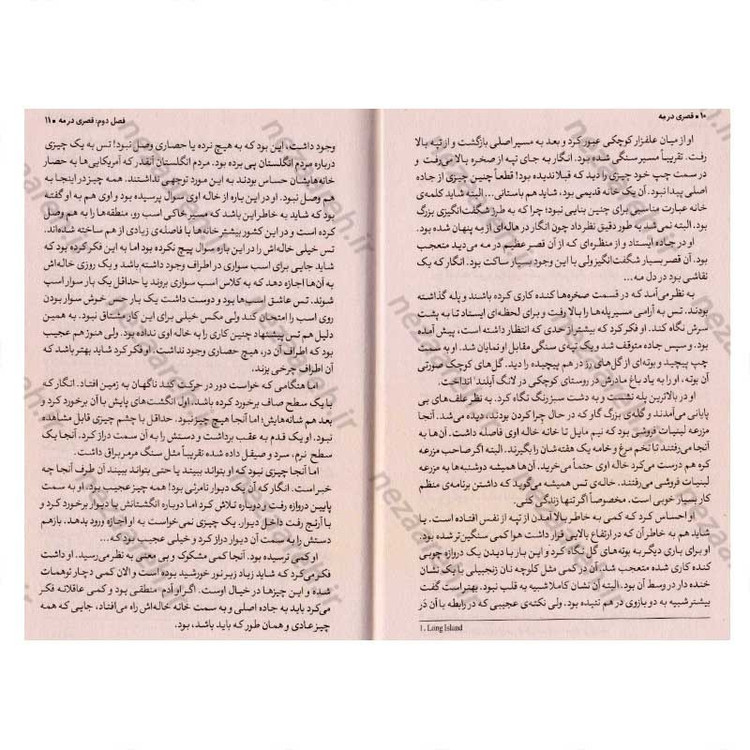 ۱۰ ● قصری در مه
او از میان علفزار کوچکی عبور کرد و بعد به مسیر اصلی بازگشت و از تپه بالا
رفت. تقریباً مسیر سنگی شده بود. انگار به جای تپه از صخره بالا می‌رفت و
در سمت چپ خود چیزی را دید که قبلا ندیده بود! قطعاً چنین چیزی از جاده
اصلی پیدا نبود. آن یک خانه قدیمی بود، شاید هم باستانی... البته شاید کلمه‌ی
خانه عبارت مناسبی برای چنین بنایی نبود؛ چرا که به طرز شگفت‌انگیزی بزرگ
بود. البته نمی‌شد به طور دقیق نظر داد چون انگار در هاله‌ای از مه پنهان شده بود.
او در جاده ایستاد و از منظره‌ای که از آن قصر عظیم در مه می‌دید متعجب
بود. آن قصر بسیار شگفت‌انگیز ولی با این وجود بسیار ساکت بود. انگار که یک
نقاشی بود در دل مه...
به نظر می‌آمد که در قسمت صخره‌ها کنده کاری کرده باشند و پله گذاشته
بودند. تس به آرامی مسیر پله‌ها را بالا رفت و برای لحظه‌ای ایستاد تا به پشت
سرش نگاه کند. او فکر کرد که بیشتر از حدی که انتظار داشته است، پیش آمده
بود. و سپس جاده متوقف شد و یک تپه‌ی سنگی مقابل او نمایان شد. او به سمت
چپ پیچید و بوته‌ای از گل‌های رز در هم پیچیده را دید. گل‌های کوچک صورتی
آن بوته، او را به یاد باغ مادرش در روستای کوچکی در لانگ آیلند¹ انداخت.
او در بالاترین پله نشست و به دشت سبزرنگ نگاه کرد. به نظر علف‌های بی
پایانی می‌آمدند و گله‌ی بزرگ گاو که در حال چرا کردن بودند، دیده می‌شد. آنجا
مزرعه لبنیات فروشی بود که نیم مایل تا خانه خاله اوی فاصله داشت. آن‌ها به
آنجا می‌رفتند تا تخم مرغ و خامه یک هفته‌شان را بگیرند. البته اگر صاحب مزرعه
کره هم درست می‌کرد خاله اوی حتماً می‌خرید. آن‌ها همیشه دوشنبه‌ها به مزرعه
لبنیات فروشی می‌رفتند. خاله‌ی تس همیشه می‌گوید که داشتن برنامه‌ی منظم
کار بسیار خوبی است. مخصوصاً اگر تنها زندگی کنی.
او احساس کرد که کمی به خاطر بالا آمدن از تپه از نفس افتاده است. یا
شاید هم به خاطر آن که در ارتفاع بالایی قرار داشت هوا کمی سنگین‌تر شده بود.
او برای باری دیگر به بوته‌های گل نگاه کرد و این بار با دیدن یک دروازه چوبی
کنده کاری شده متعجب شد. آن در کمی مثل کلوچه نان زنجبیلی با یک نشان
خنده دار در وسط آن بود. البته آن نشان کاملا شبیه به قلب نبود. بهتر است گفت
بیشتر شبیه به دو بازوی در هم تنیده بود. ولی نکته‌ی عجیبی که در رابطه با آن در
1. Long Island
فصل دوم: قصری در مه ● ۱۱
وجود داشت، این بود که به هیچ نرده یا حصاری وصل نبود! تس به یک چیزی
درباره مردم انگلستان پی برده بود. مردم انگلستان آنقدر که آمریکایی‌ها به حصار
خانه‌هایشان حساس بودند به این مورد توجهی نداشتند. همه چیز در اینجا به
هم وصل نبود. او در این باره از خاله اوی سوال پرسیده بود و اوی هم به او گفته
بود که شاید به خاطر این باشد که مسیر خاکی اسب رو، منطقه‌ها را به هم وصل
کرده است و در این کشور بیشتر خانه‌ها با فاصله‌ی زیادی از هم ساخته شده‌اند.
تس خیلی خاله‌اش را در این باره سوال پیچ نکرده بود اما به این فکر کرده بود که
شاید جایی برای اسب سواری در اطراف وجود داشته باشد و یک روزی خاله‌اش
به آن‌ها اجازه دهد که به کلاس اسب سواری بروند یا حداقل یک بار سوار اسب
شوند. تس عاشق اسب‌ها بود و دوست داشت یک بار حس خوش سوار بودن
روی اسب را امتحان کند ولی مکس خیلی برای این کار مشتاق نبود. به همین
دلیل هم تس پیشنهاد چنین کاری را به خاله اوی نداده بود. ولی هنوز هم عجیب
بود که اطراف آن در، هیچ حصاری وجود نداشت. او فکر کرد شاید بهتر باشد که
آن اطراف چرخی بزند.
اما هنگامی که خواست دور در حرکت کند ناگهان به زمین افتاد. انگار که
با یک سطح صاف برخورد کرده باشد، اول انگشت‌های پایش با آن برخورد کرد و
بعد هم شانه‌هایش؛ اما آنجا هیچ چیز نبود. حداقل با چشم چیزی قابل مشاهده
نبود. او یک قدم به عقب برداشت و دستش را به آن سمت دراز کرد. آنجا یک
سطح نرم، سرد و صیقل داده شده تقریباً مثل سنگ مرمر براق داشت.
اما آنجا چیزی نبود که او بتواند ببیند یا حتی بتواند ببیند آن طرف آنجا چه
خبر است. انگار که آن یک دیوار نامرئی بود! همه چیز عجیب بود. او به سمت
پایین دروازه رفت و دوباره تلاش کرد اما دوباره انگشتانش با دیوار برخورد کرد و
با آرنج رفت داخل دیوار. یک چیزی نمی‌خواست به او اجازه ورود بدهد. باز هم
دستش را به سمت آن دیوار دراز کرد و خیلی عجیب بود که...
او کمی ترسیده بود. آنجا کمی مشکوک و بی معنی به نظر می‌رسید. او داشت
فکر می‌کرد که شاید زیاد زیر نور خورشید بوده است و الان کمی دچار توهمات
شده و این چیزها در خیال اوست. اگر او آدم منطقی بود و کمی عاقلانه فکر
می‌کرد باید به جاده اصلی و به سمت خانه خاله‌اش راه می‌افتاد، جایی که همه
چیز عادی و همان طور که باید باشد، بود.
nezaareh.ir